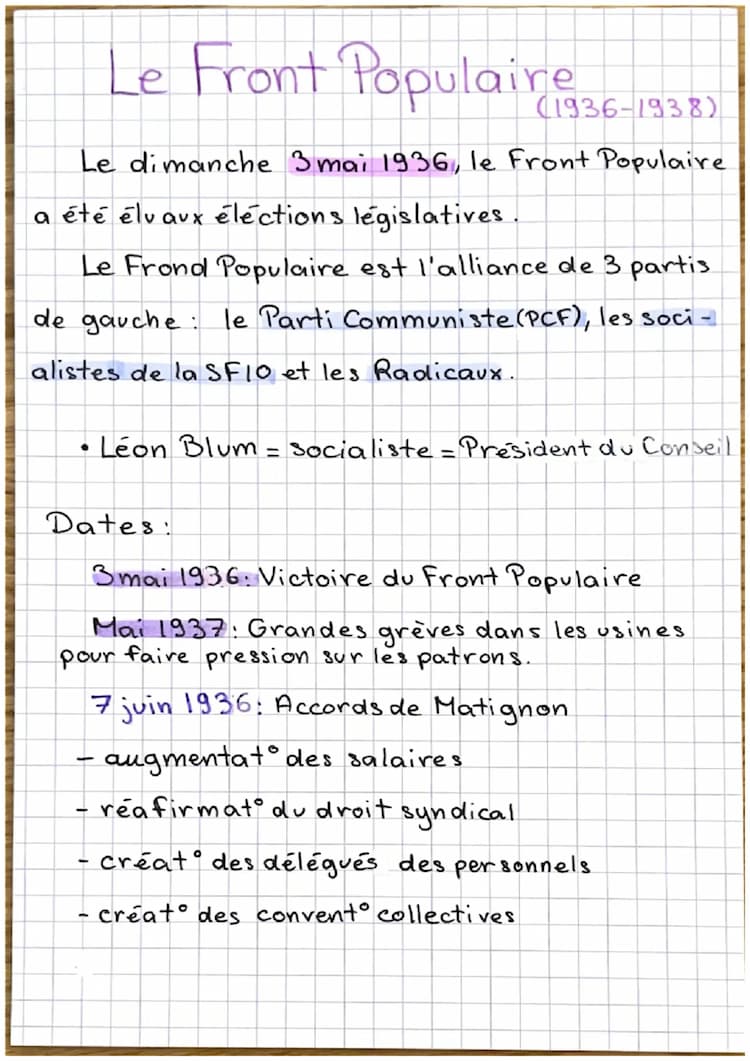 Le Front Populaire
(1936-1938)
Le dimanche 3 mai 1936, le Front Populaire
a été élu aux éléctions législatives.
Le Frond Populaire est l'alliance de 3 partis
de gauche : le Parti Communiste (PCF), les soci-
alistes de la SFIO et les Radicaux.
• Léon Blum = socialiste = Président du Conseil
Dates :
3 mai 1936 : Victoire du Front Populaire
Mai 1937 : Grandes grèves dans les usines
pour faire pression sur les patrons.
7 juin 1936 : Accords de Matignon
- augmentat° des salaires
- réafirmat° du droit syndical
- créat° des délégués des personnels
- créat° des convent° collectives